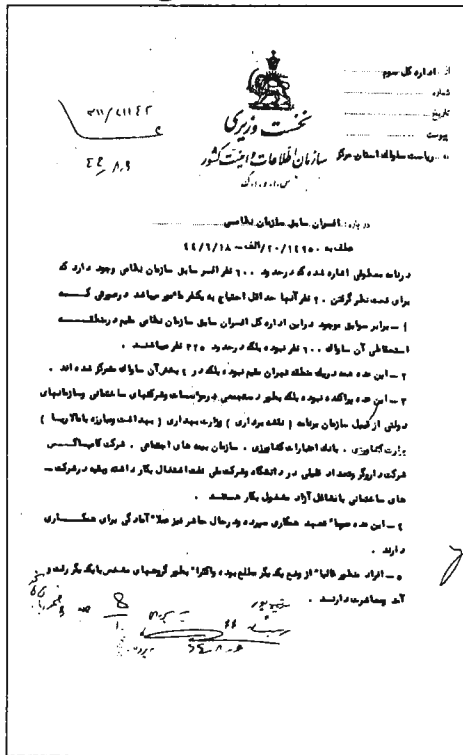 از : اداره کل سوم
شماره
تاریخ
پیوست
نخست وزیری
سازمان اطلاعات و امنیت کشور
س.ا.و.ا.ک
به : ریاست ساواک استان مرکز
۳۱۱/۲۱۱۴۲
۴۴/۸/۹
درباره : افسران سابق سازمان نظامی
عطف به ۲۰/۱۴۹۵۰/الف – ۴۴/۶/۱۸
در نامه معطوفی اشاره شده که در حدود ۶۰۰ نفر افسر سابق سازمان نظامی وجود دارد که
برای تحت نظر گرفتن ۲۰ نفر آنها حداقل احتیاج به یکنفر مامور میباشد در صورتی که
۱ – برابر سوابق موجود در این اداره کل افسران سابق سازمان نظامی مقیم در منطقه
استحفاظی آن ساواک ۶۰۰ نفر نبوده بلکه در حدود ۲۲۵ نفر میباشند .
۲ – این عده همه در یک منطقه تهران مقیم نبوده بلکه در ۶ بخش آن ساواک متمرکز شده اند .
۳ – این عده پراکنده نبوده بلکه بطور دستجمعی در موسسات و شرکتهای ساختمانی و سازمانهای
دولتی از قبیل سازمان برنامه ( نقشه برداری ) وزارت بهداری ( بهداشت و مبارزه با مالاریا )
وزارت کشاورزی . بانک اعتبارات کشاورزی . سازمان بیمه های اجتماعی . شرکت کامپساکس
شرکت داروگر و تعداد قلیلی در دانشگاه و شرکت ملی نفت اشتغال بکار داشته و بقیه در شرکت –
های ساختمانی یا مشاغل آزاد مشغول بکار هستند .
۴ – این عده عموما" تعهد همکاری سپرده و در حال حاضر نیز عملا" آمادگی برای همکاری
دارند .
۵ – افراد منظور غالبا" از وضع یکدیگر مطلع بوده و اکثرا" بطور گروههای مشخص با یکدیگر رفت و
آمد و معاشرت دارند .